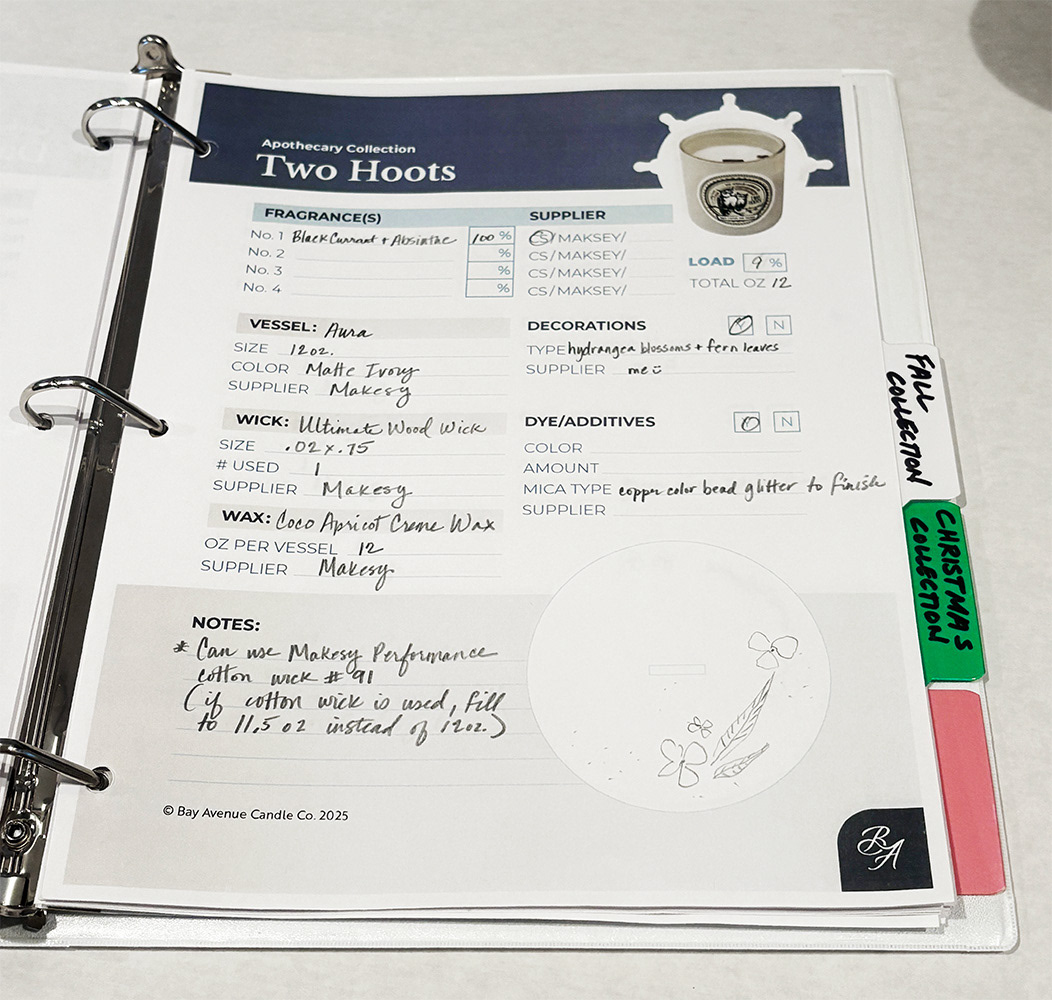 Apothecary Collection
Two Hoots
FRAGRANCE(S) SUPPLIER
No. 1 Black Currant + Absinthe 100 % CS/MAKSEY/
No. 2 % CS/MAKSEY/
No. 3 % CS/MAKSEY/
No. 4 % CS/MAKSEY/
LOAD 9 %
TOTAL OZ 12
VESSEL: Aura
SIZE 12oz.
COLOR Matte Ivory
SUPPLIER Makesy
DECORATIONS Y N
TYPE hydrangea blossoms + fern leaves
SUPPLIER me
WICK: Ultimate Wood Wick
SIZE .02 x .75
# USED 1
SUPPLIER Makesy
DYE/ADDITIVES Y N
COLOR
AMOUNT
MICA TYPE copper color bead glitter to finish
SUPPLIER
WAX: Coco Apricot Creme Wax
OZ PER VESSEL 12
SUPPLIER Makesy
NOTES:
* Can use Makesy Performance
cotton wick # 91
(if cotton wick is used, fill
to 11.5 oz instead of 12oz.)
© Bay Avenue Candle Co. 2025
BA
FALL
COLLECTION
CHRISTMAS
COLLECTION